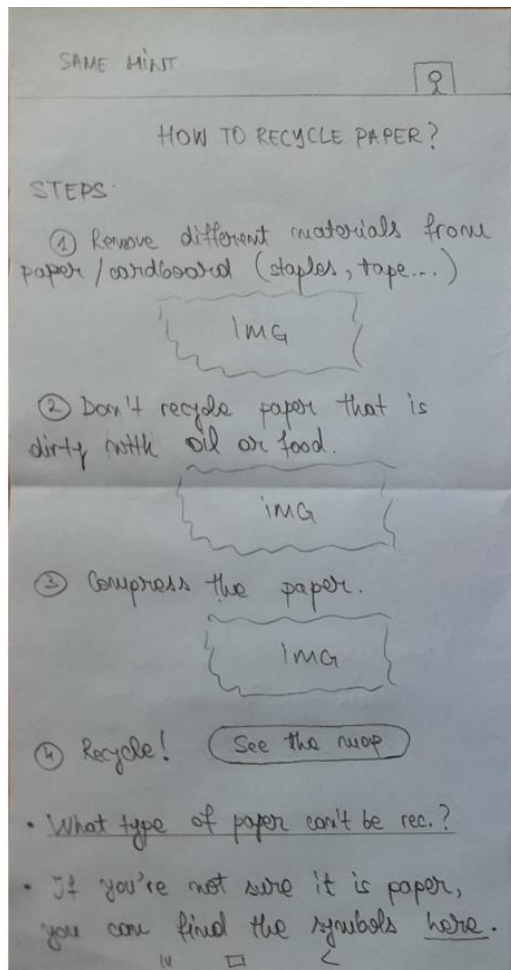 SAME MINT
HOW TO RECYCLE PAPER?
STEPS:
① Remove different materials from
paper/cardboard (staples, tape...)
IMG
② Don't recycle paper that is
dirty with oil or food.
iMG
③ Compress the paper.
IMG
④ Recycle! See the map
• What type of paper can't be rec.?
• If you're not sure it is paper,
you can find the symbols here.